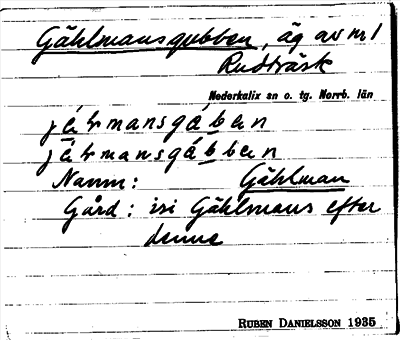 Gählmansgubben, äg av nr 1
Rudträsk
Nederkalix sn o. tg. Norrb. län
jä́lmansgában
jä́lmansgábban
Namn: Gählman
Gård: isi Gählmans efter
denne
RUBEN DANIELSSON 1935